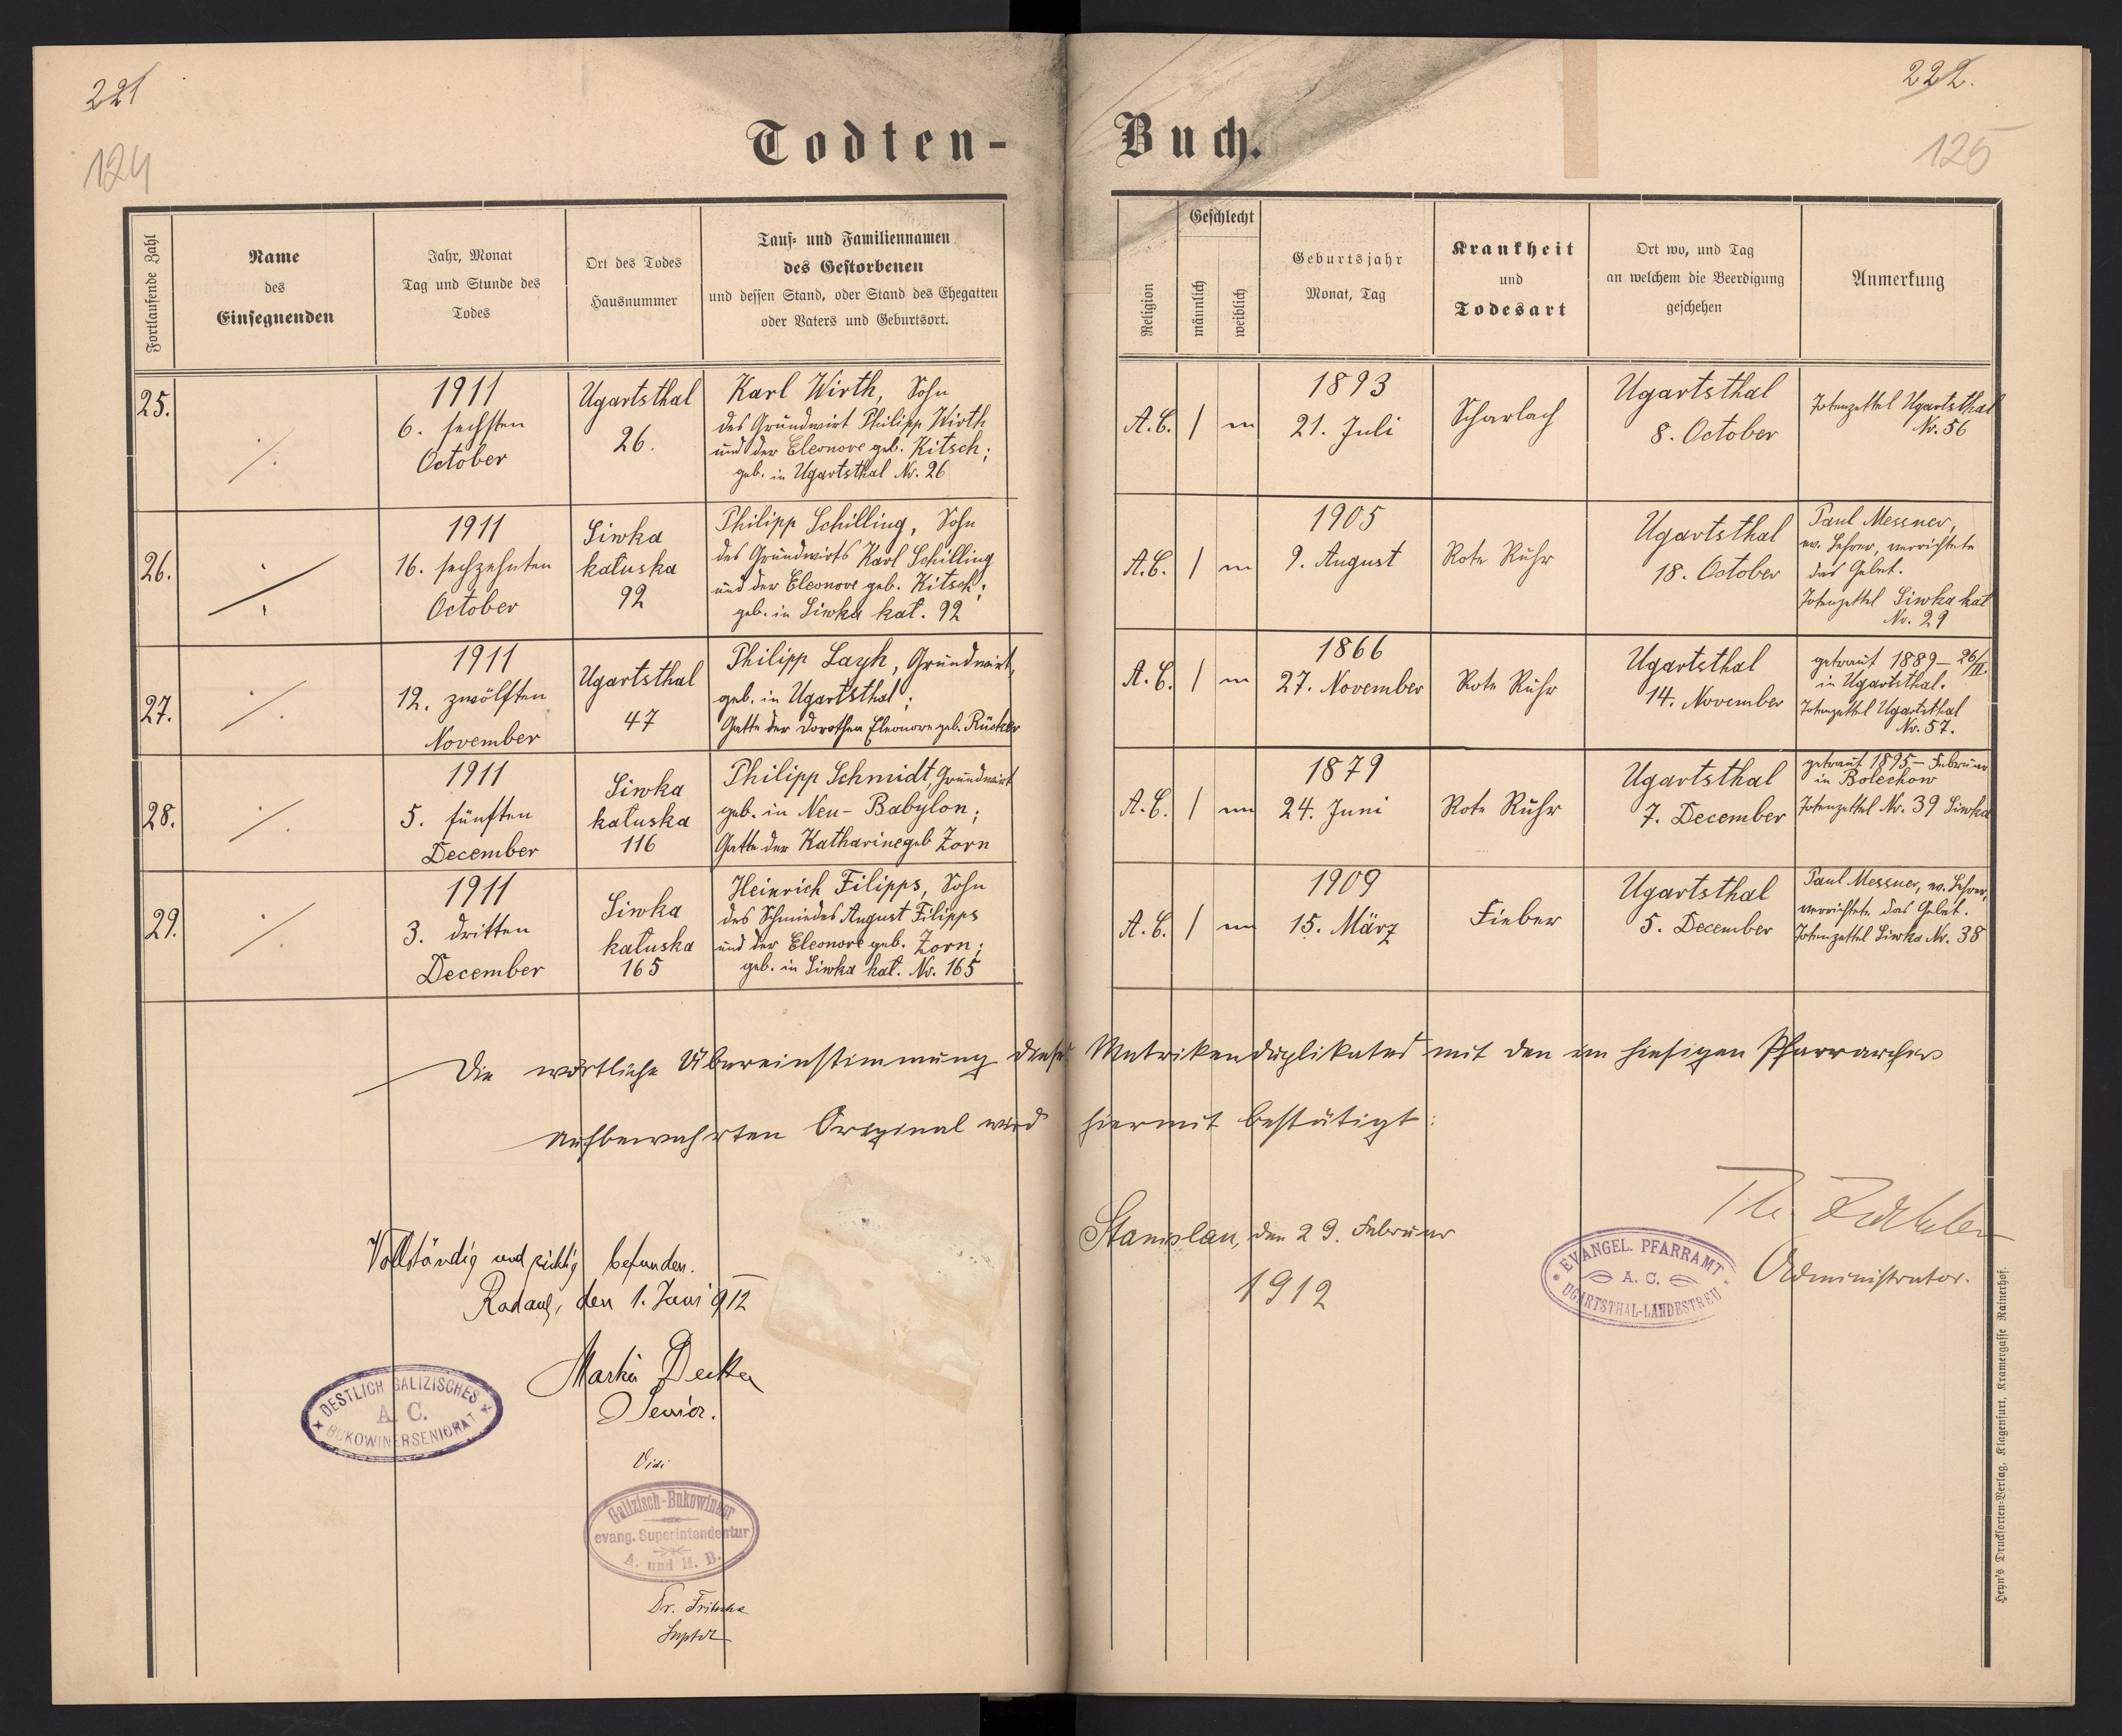 221
124
Todten-
Fortlaufende Zahl
Name
des
Einsegnenden
Jahr, Monat
Tag und Stunde des
Todes
Ort des Todes
Hausnummer
Tauf- und Familiennamen
des Gestorbenen
und dessen Stand, oder Stand des Ehegatten
oder Vaters und Geburtsort.
25.
1911
6. sechsten
October
Ugartsthal
26.
Karl Wirth, Sohn
des Grundwirt Philipp Wirth
und der Eleonore geb. Kitsch;
geb. in Ugartsthal Nr. 26
26.
1911
16. sechzehnten
October
Siwka
kałuska
92
Philipp Schilling, Sohn
des Grundwirts Karl Schilling
und der Eleonore geb. Kitsch;
geb. in Siwka kał. 92
27.
1911
12. zwölften
November
Ugartsthal
47
Philipp Layh, Grundwirt,
geb. in Ugartsthal;
Gatte der Dorothea Eleonore geb. Rücker
28.
1911
5. fünften
December
Siwka
kałuska
116
Philipp Schmidt Grundwirt
geb. in Neu-Babylon;
Gatte der Katharine geb Zorn
29.
1911
3. dritten
December
Siwka
kałuska
165
Heinrich Filipps, Sohn
des Schmiedes August Filipps
und der Eleonore geb. Zorn;
geb. in Siwka kał. No. 165
222.
125
Buch.
Religion
Geschlecht
männlich
weiblich
Geburtsjahr
Monat, Tag
Krankheit
und
Todesart
Ort wo, und Tag
an welchem die Beerdigung
geschehen
Anmerkung
A.C. / m
1893
21. Juli
Scharlach
Ugartsthal
8. October
Totenzettel Ugartsthal
Nr. 56
A.C. / m
1905
9. August
Rote Ruhr
Ugartsthal
18. October
Paul Messner,
ev. Lehrer, verrichtete
das Gebet.
Totenzettel Siwka kał
Nr. 29
A.C. / m
1866
27. November
Rote Ruhr
Ugartsthal
14. November
getraut 1889 – 26/II
in Ugartsthal.
Totenzettel Ugartsthal
Nr. 57.
A.C. / m
1879
24. Juni
Rote Ruhr
Ugartsthal
7. December
getraut 1895 – Februar
in Bolechow
Totenzettel Nr. 39 Siwka
A.C. / m
1909
15. März
Fieber
Ugartsthal
5. December
Paul Messner, ev. Lehrer,
verrichtete das Gebet.
Totenzettel Siwka Nr. 38
Die wörtliche Übereinstimmung dieses Matrikenduplikates mit den im hiesigen Pfarrarchiv
aufbewahrten Original wird hiermit bestätigt:
Stanislau, den 29. Februar
1912
Administrator.
EVANGEL. PFARRAMT
A. C.
UGARTSTHAL-LANDESTREU
Vollständig und richtig befunden.
Radautz, den 1. Juni 912
Martin Decker
Senior.
OESTLICH GALIZISCHES
A. C.
BUKOWINERSENIORAT
Vidi
Galizisch-Bukowinaer
evang. Superintendentur
A. und H. B.
Dr. Fritsche
Suptdt
Heyn's Drucksorten-Verlag, Klagenfurt, Kramergasse Rainerhof.